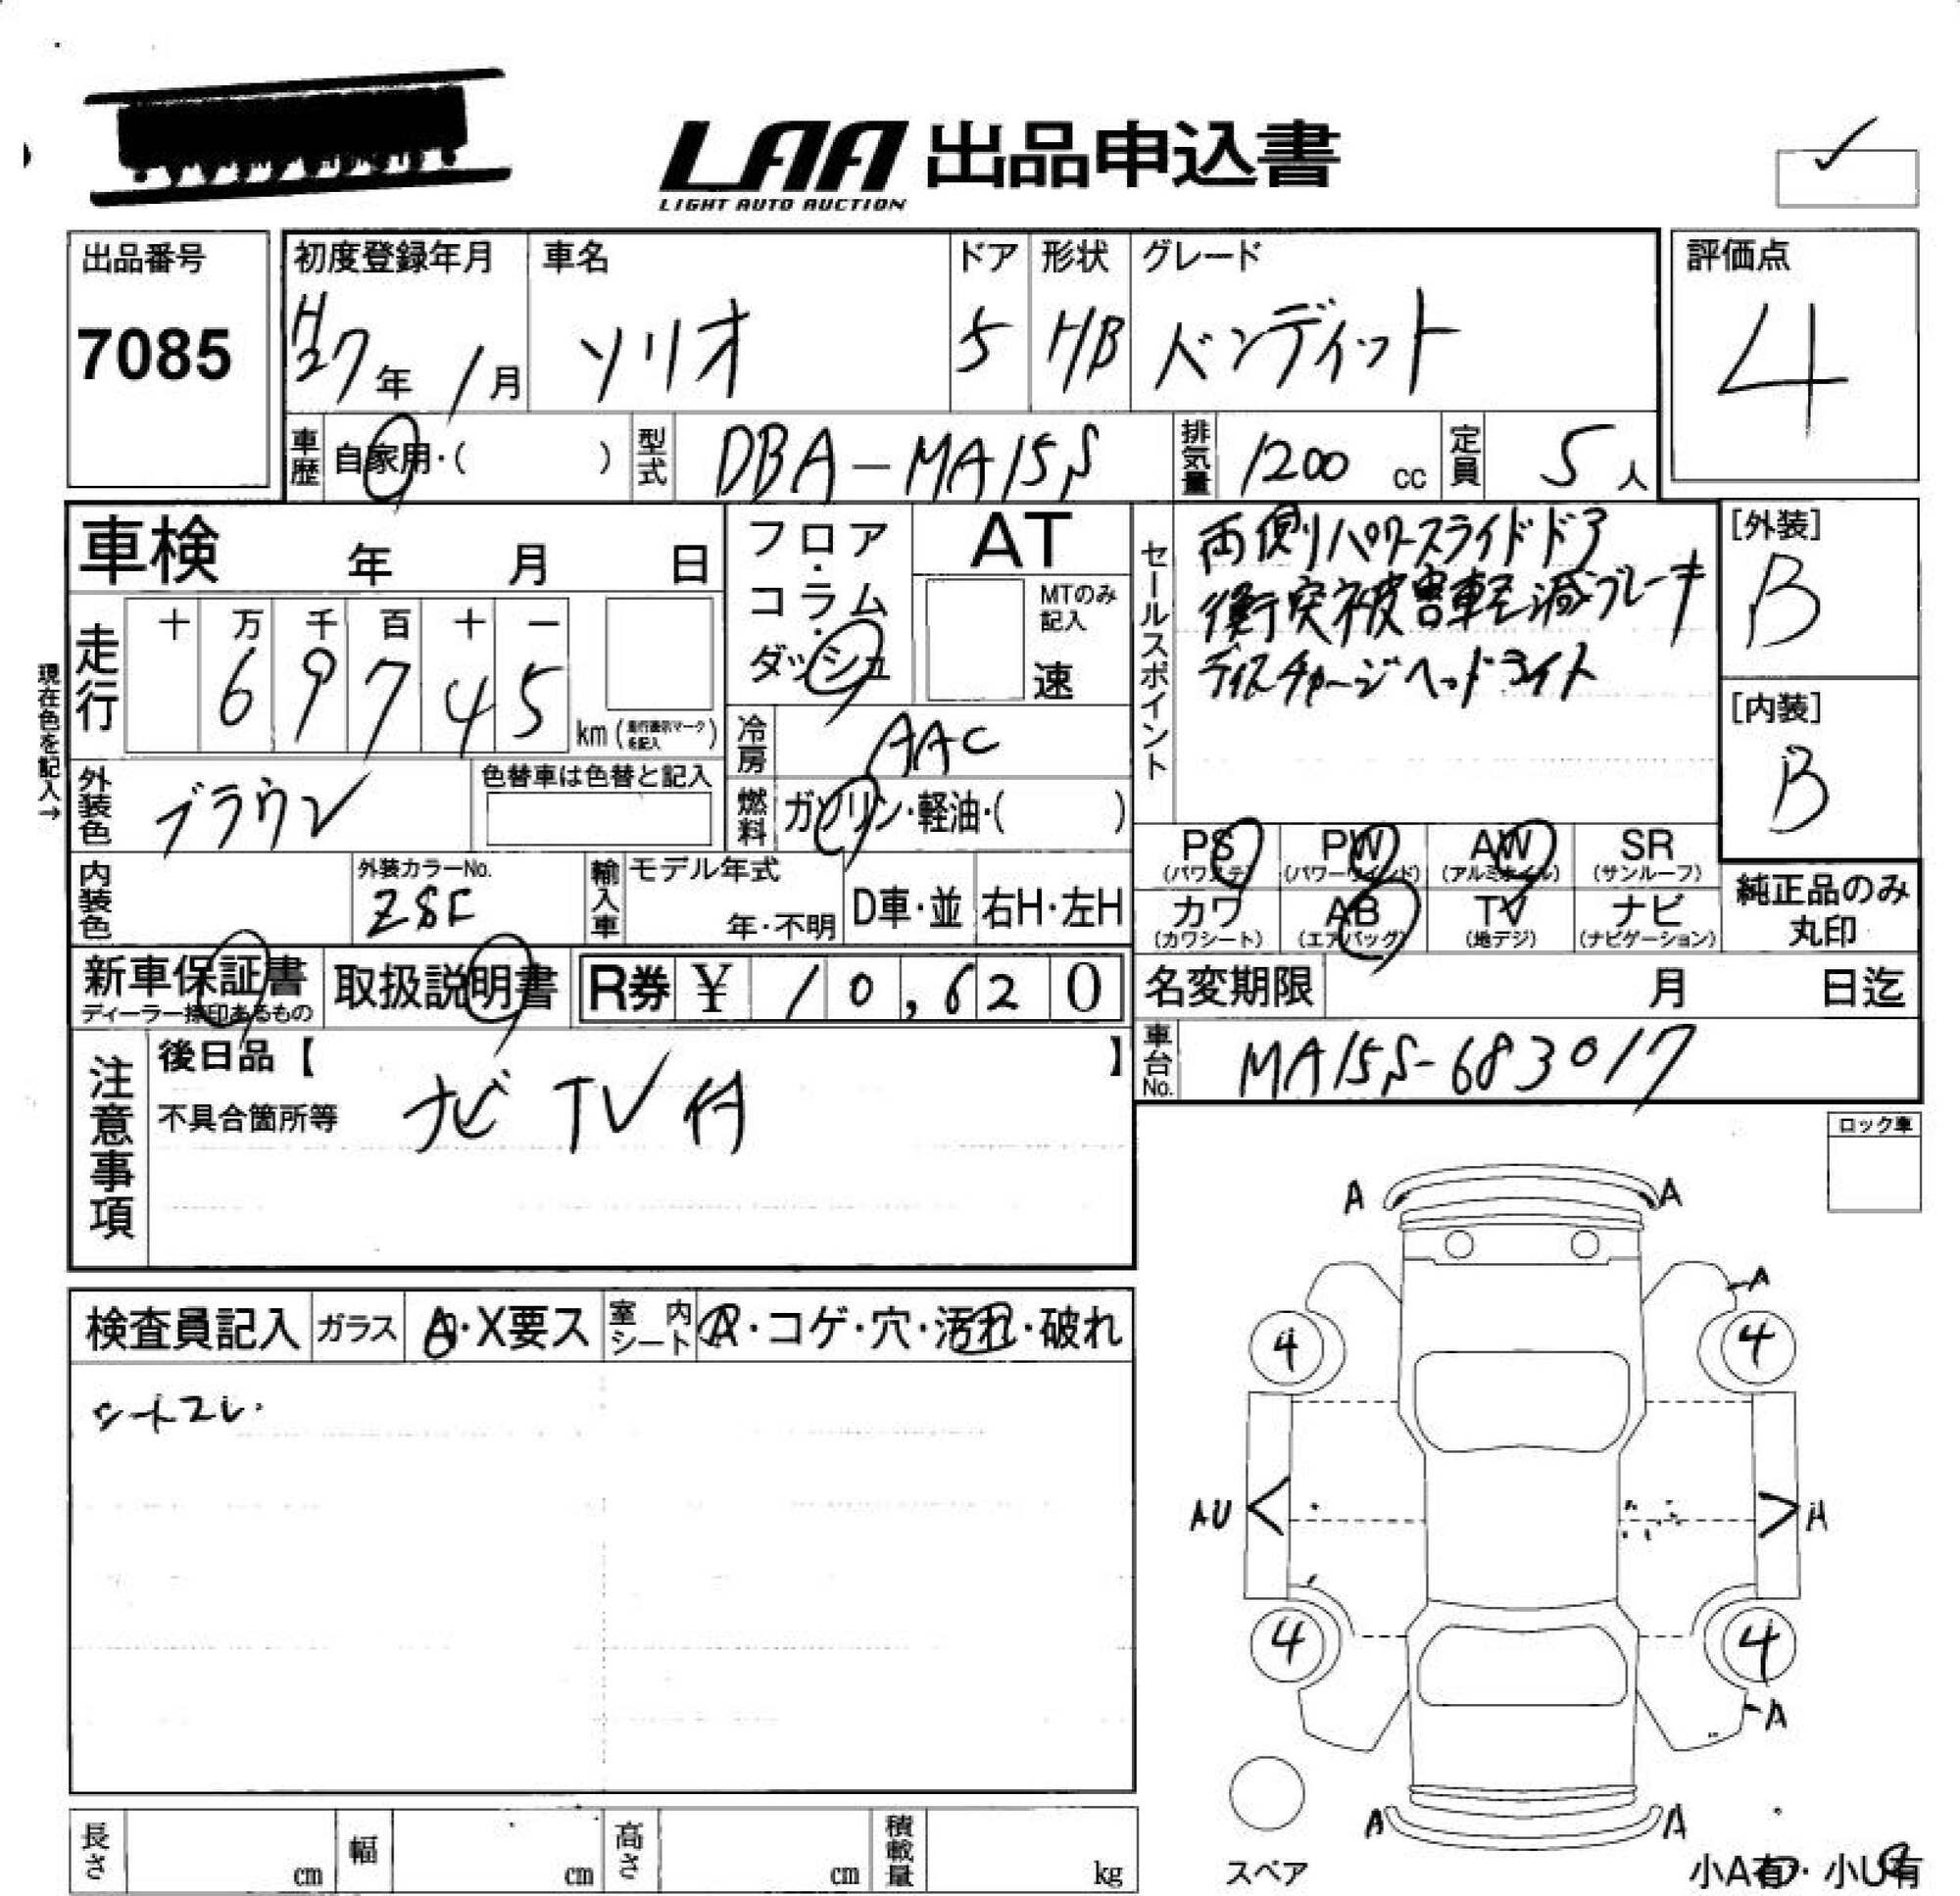 LAA 出品申込書
LIGHT AUTO AUCTION
出品番号
7085
初度登録年月
H27年 1月
車名
ソリオ
ドア
5
形状
H/B
グレード
バンディット
評価点
4
車歴
自家用・( )
型式
DBA-MA15S
排気量
1200 cc
定員
5人
車検 年 月 日
フロア・コラム・ダッシュ
AT
MTのみ記入
速
セールスポイント
両側パワースライドドア
衝突被害軽減ブレーキ
ディスチャージヘッドライト
[外装]
B
[内装]
B
走行
十 万 千 百 十 一
6 9 7 4 5
km (走行表示マークを記入)
現在色を記入→
冷房
AAC
外装色
ブラウン
色替車は色替と記入
燃料
ガソリン・軽油・( )
PS (パワステ)
PW (パワーウインド)
AW (アルミホイル)
SR (サンルーフ)
カワ (カワシート)
AB (エアバッグ)
TV (地デジ)
ナビ (ナビゲーション)
純正品のみ
丸印
内装色
外装カラーNo.
ZSF
輸入車
モデル年式
年・不明
D車・並
右H・左H
新車保証書
ディーラー捺印あるもの
取扱説明書
R券 ¥ 10,620
名変期限 月 日迄
車台No.
MA15S-683017
注意事項
後日品【 】
不具合箇所等
ナビ TV付
ロック車
検査員記入
ガラス
A・X要ス
室内シート
A・コゲ・穴・汚れ・破れ
シートスレ
A A
A
4 4
AU A
4 4
A
A A
スペア
小A有・小U有
長さ cm
幅 cm
高さ cm
積載量 kg